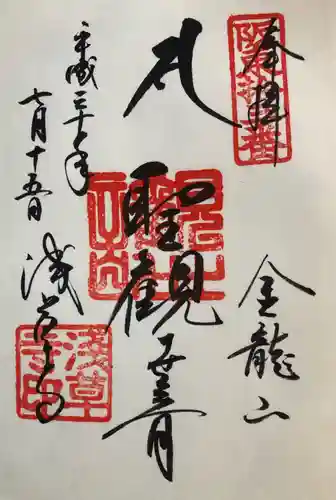 奉拝
坂東拾三番
金龍山
聖観世音
平成三十年
七月十五日
浅草寺
浅草寺印